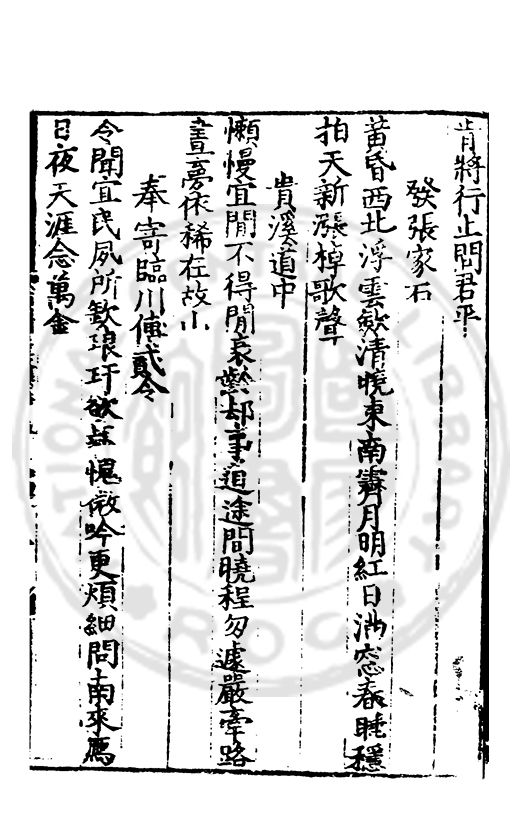 肯將行止問君平
發張家石
黃昏西北浮雲斂清曉東南霽月明紅日滿窓春睡穩
拍天新漲棹歌聲
貴溪道中
懶慢宜閒不得閒衰鬢却事道途間曉程匆遽嚴牽路
晝夢依稀在故山
奉寄臨川俺貳令
令聞宜民夙所欽琅玕欲 愧微吟更煩細問南來鴈
日夜天涯念萬金